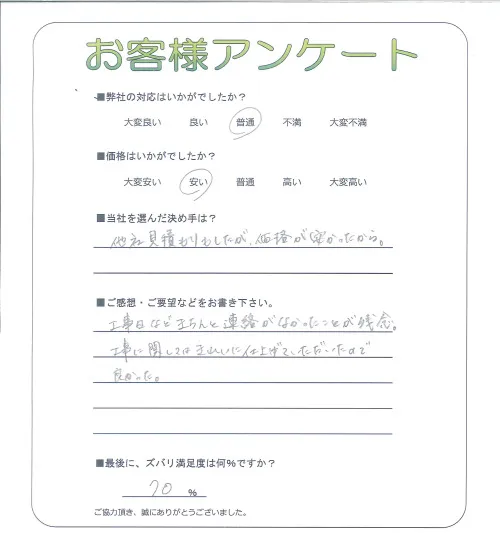 お客様アンケート
■弊社の対応はいかがでしたか？
大変良い 良い 普通 不満 大変不満
■価格はいかがでしたか？
大変安い 安い 普通 高い 大変高い
■当社を選んだ決め手は？
他社見積もりもしたが、価格が安かったから。
■ご感想・ご要望などをお書き下さい。
工事日などきちんと連絡がなかったことが残念。
工事に関してはきれいに仕上げていただいたので
良かった。
■最後に、ズバリ満足度は何％ですか？
70 %
ご協力頂き、誠にありがとうございました。